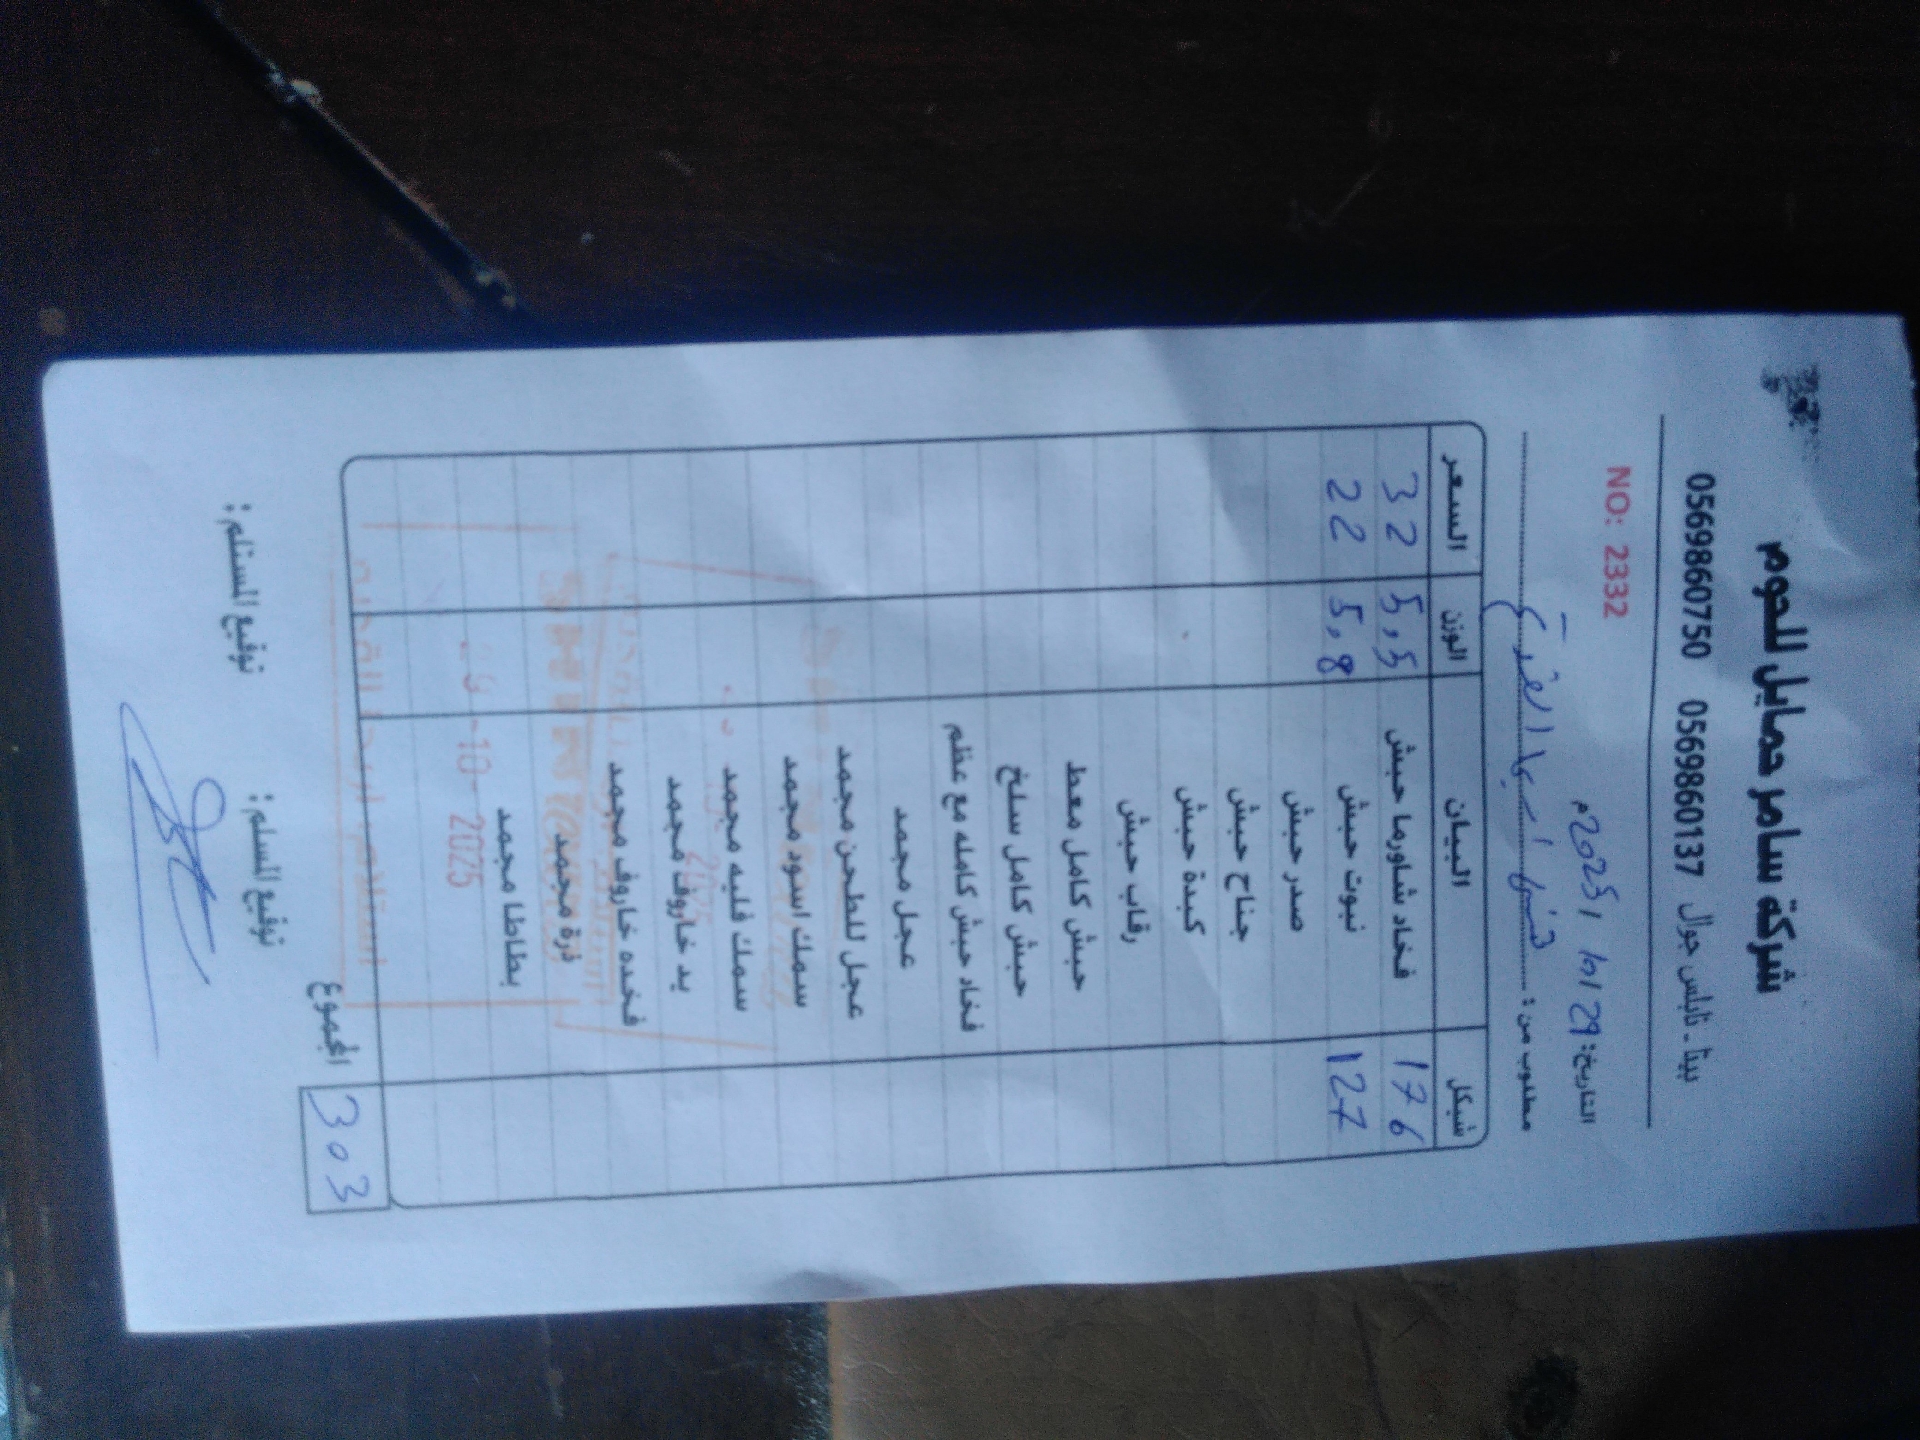 شركة سامر حمايل للحوم
بيتا - نابلس جوال 0569860137 0569860750
NO: 2332
التاريخ: 29 / 10 / 2025م
مطلوب من:
شيكل البيان الوزن السعر
176 فخاد شاورما حبش 5,5 32
127 نبوت حبش 5,8 22
صدر حبش
جناح حبش
كبدة حبش
رقاب حبش
حبش كامل معط
حبش كامل سلخ
فخاد حبش كامله مع عظم
عجل مجمد
عجل للطحن مجمد
سمك اسود مجمد
سمك فليه مجمد
يد خاروف مجمد
فخده خاروف مجمد
ذرة مجمد
بطاطا مجمد
-10-2025
المجموع 303
توقيع المسلم: توقيع المستلم: